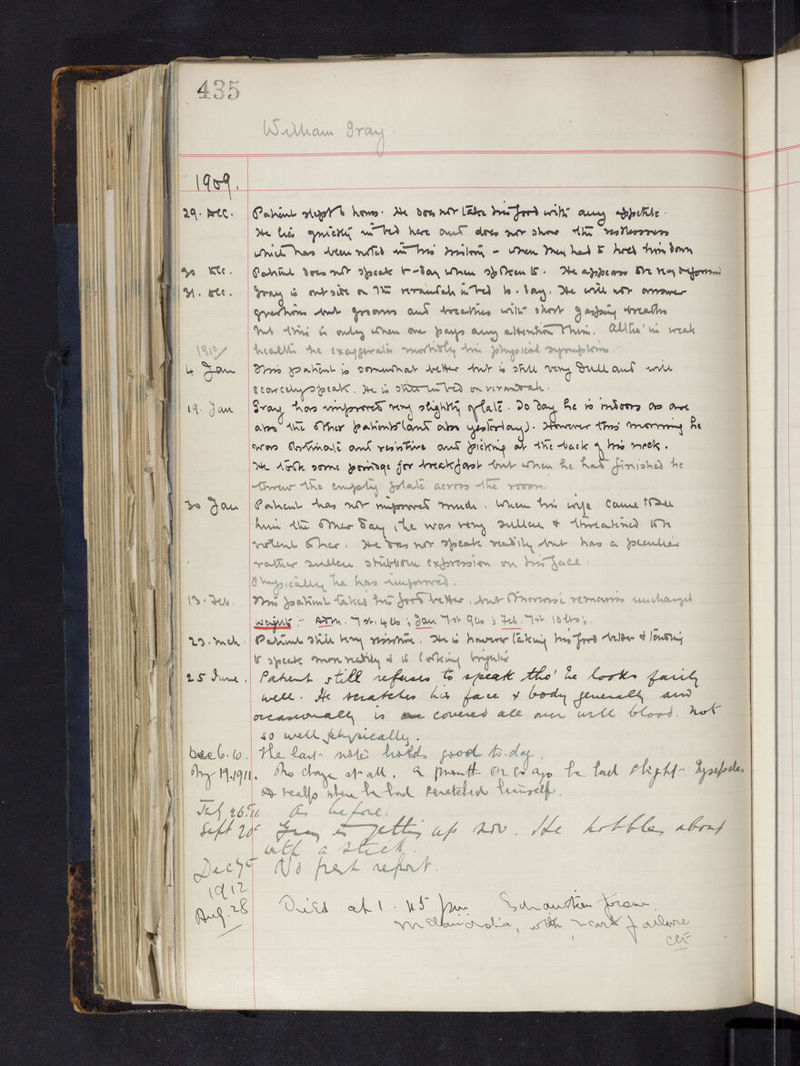 435
William Gray.
1909.
29. Dec. Patient slept 6 hours. He does not take his food with any appetite.
He lies quietly in bed here and does not show the restlessness
which has been noted in his history - when they had to hold him down
30 Dec. Patient does not speak to-day when spoken to. He appears to be very depressed
31. Dec. Gray is outside on the verandah in bed to-day. He will not answer
questions but groans and breathes with short gasping breaths
but this is only when one pays any attention to him. Altho' in weak
1910/ health he exaggerates morbidly his physical symptoms.
4 Jan This patient is somewhat better but is still very dull and will
scarcely speak. He is still in bed on verandah.
19. Jan Gray has improved very slightly of late. To day he is indoors as are
also the other patients (and also yesterday). However this morning he
was obstinate and resistive and picking at the back of his neck.
He took some porridge for breakfast but when he had finished he
threw the empty plate across the room.
30 Jan Patient has not improved much. When his wife came to see
him the other day, he was very sullen & threatened to be
violent to her. He does not speak readily but has a peculiar
rather sullen stubborn expression on his face.
Physically he has improved.
13. Feb. This patient takes his food better, but otherwise remains unchanged
weight :- Adm. 7st. 4lbs ; Jan 7st 9lbs ; Feb. 7st 10lbs ;
23. Mch. Patient still very resistive. He is however taking his food better & tending
to speak more readily & is looking brighter
25 June. Patient still refuses to speak tho' he looks fairly
well. He scratches his face & body generally and
occasionally is covered all over with blood. Not
so well physically.
Dec 6. 10. The last note holds good to-day.
May 19. 1911. No change at all. A month or so ago he had slight Erysipelas
of scalp where he had scratched himself.
July 26. 11 As before.
Sept 20th Gray is getting up now. He hobbles about
with a stick.
Dec 7th No fresh report.
1912
Aug. 28 Died at 1.45 pm. Exhaustion from
Melancholia, with heart failure